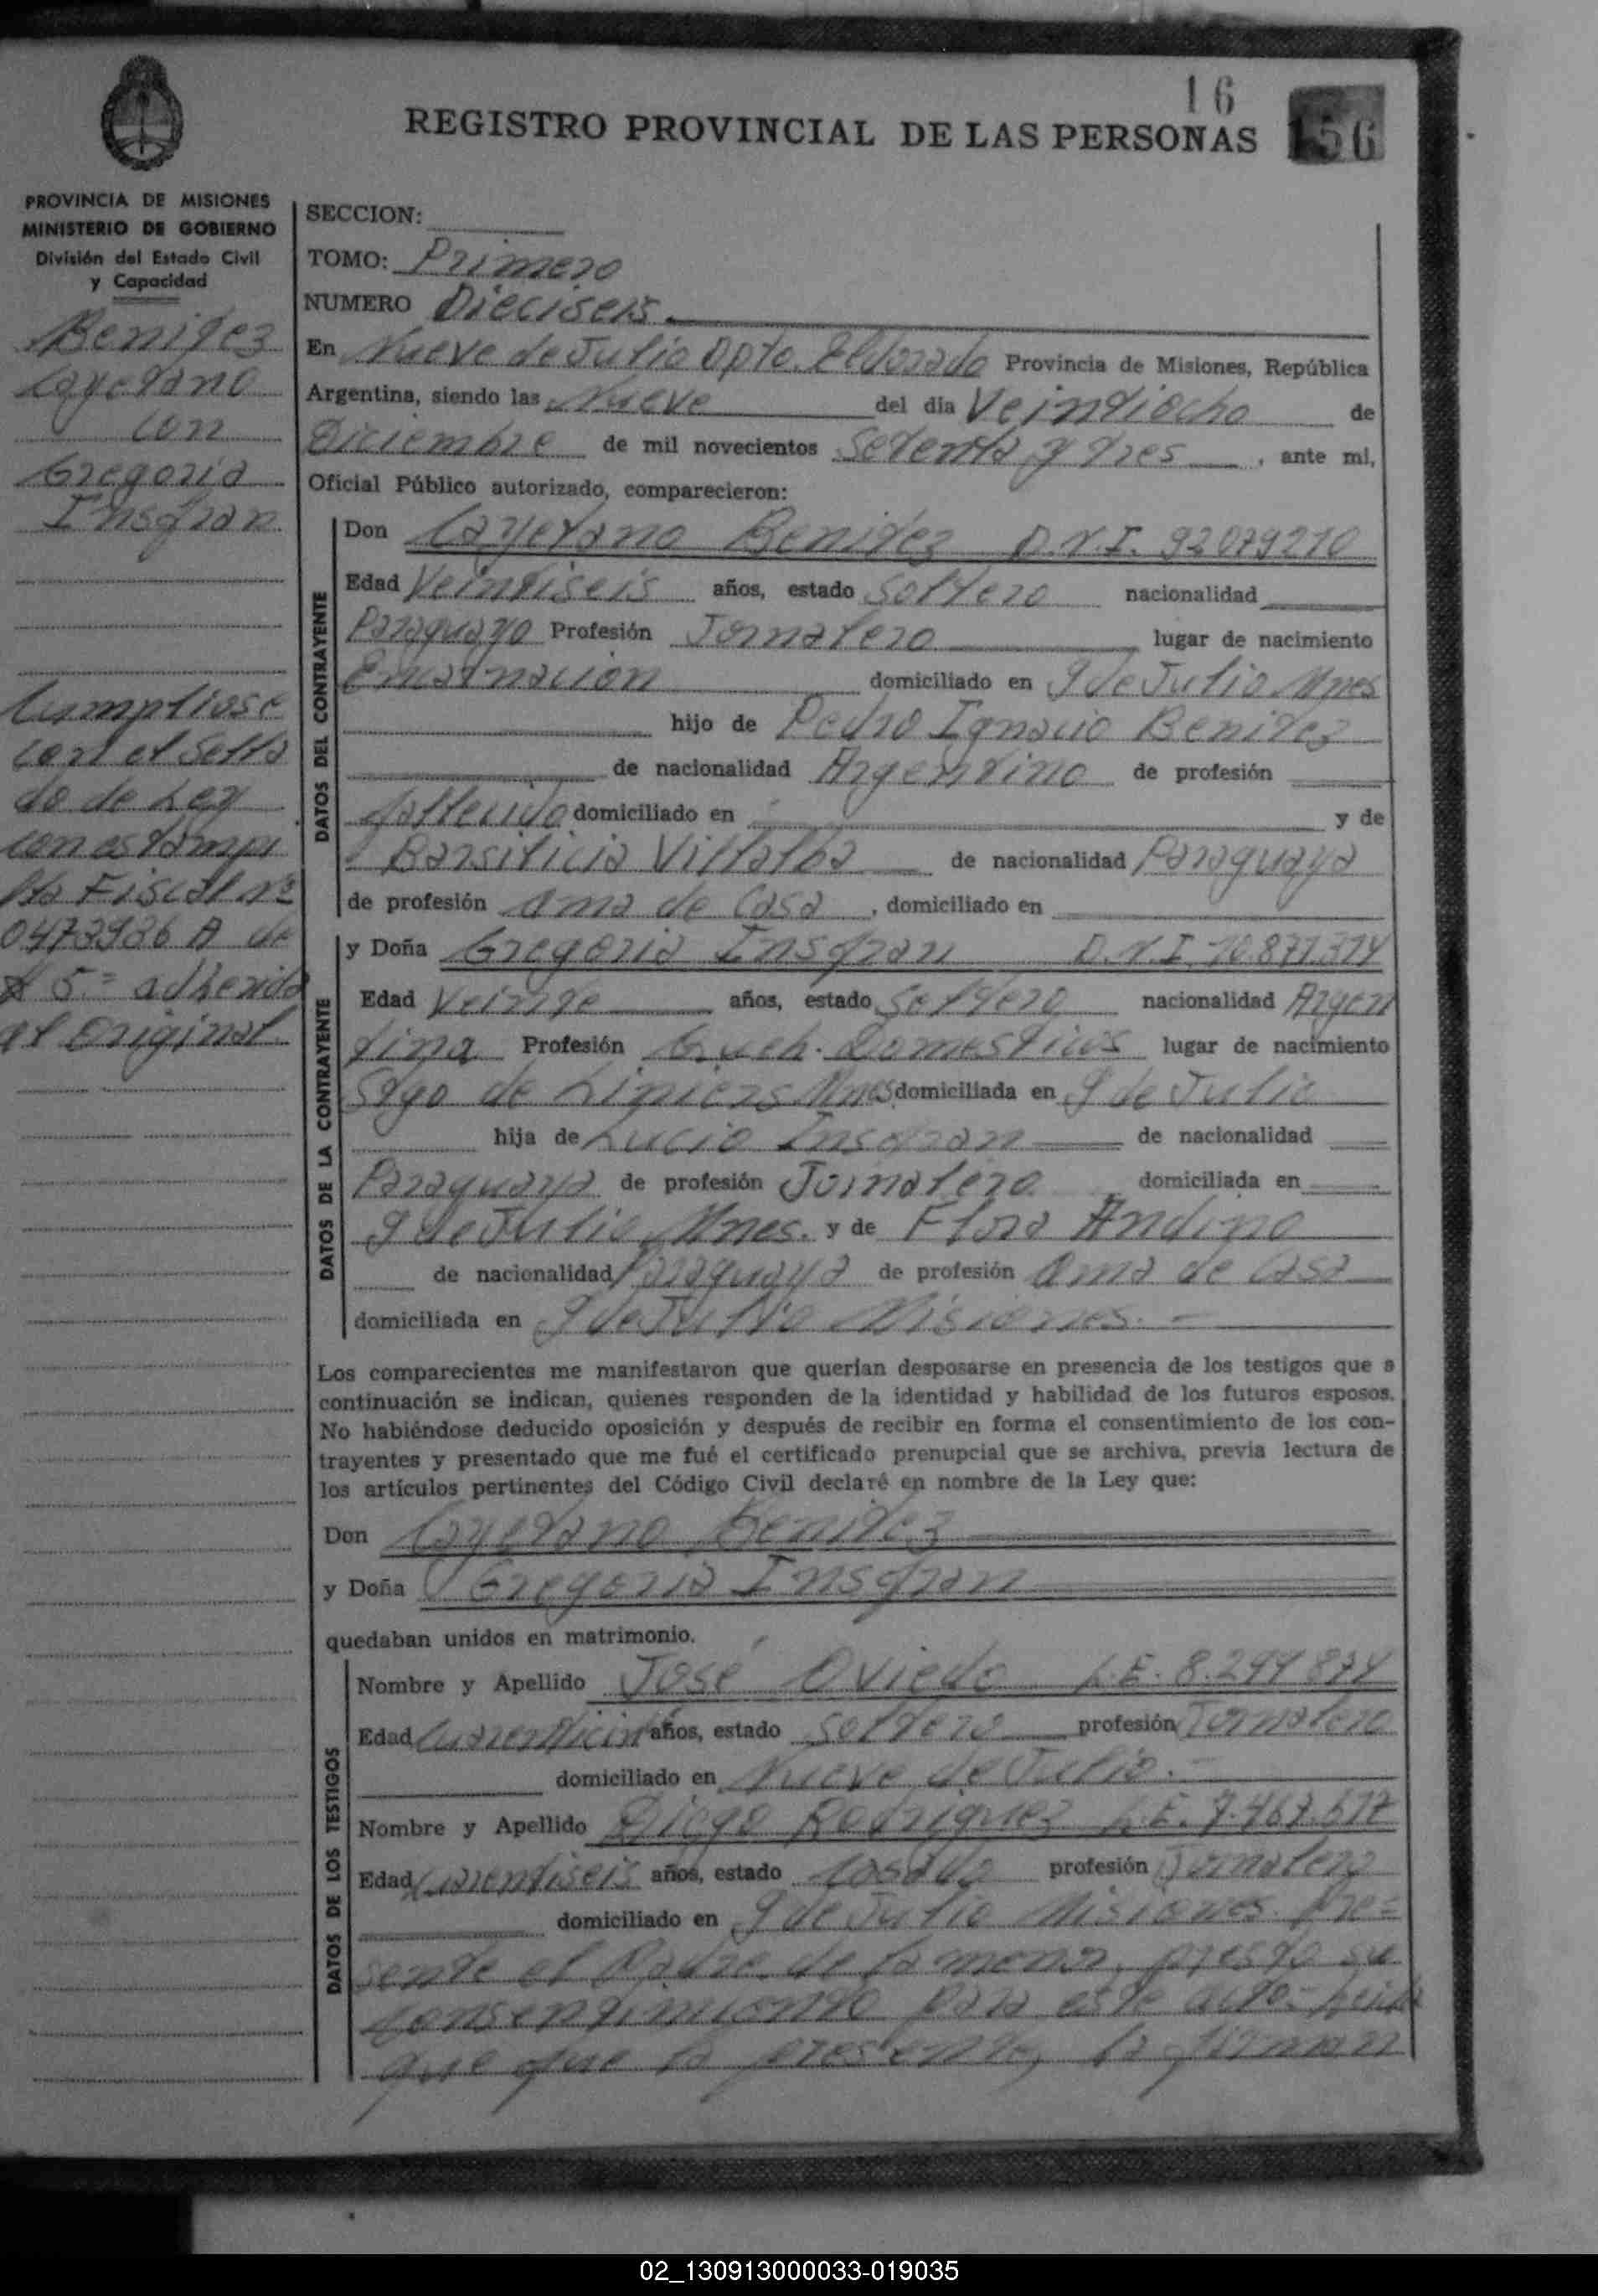 16
REGISTRO PROVINCIAL DE LAS PERSONAS 156
PROVINCIA DE MISIONES
MINISTERIO DE GOBIERNO
División del Estado Civil
y Capacidad
Benitez
Cayetano
con
Gregoria
Insfran
Cumpliose
con el sella
do de Ley
con estampi
lla Fiscal Nº
0473926 A de
$ 5= adherida
al original.
SECCION:
TOMO: Primero
NUMERO Dieciseis.
En Nueve de Julio Dpto. Eldorado Provincia de Misiones, República
Argentina, siendo las Nueve del día Veintiocho de
Diciembre de mil novecientos Setenta y tres, ante mi,
Oficial Público autorizado, comparecieron:
DATOS DEL CONTRAYENTE
Don Cayetano Benitez D.N.I. 92079210
Edad Veintiseis años, estado Soltero nacionalidad
Paraguayo Profesión Jornalero lugar de nacimiento
Encarnación domiciliado en 9 de Julio Mnes
hijo de Pedro Ignacio Benitez
de nacionalidad Argentino de profesión
fallecido domiciliado en y de
Barsilicia Villalba de nacionalidad Paraguaya
de profesión ama de casa, domiciliado en
DATOS DE LA CONTRAYENTE
y Doña Gregoria Insfran D.N.I. 10.871.314
Edad Veinte años, estado Soltera nacionalidad Argen
tina Profesión Queh. Domesticos lugar de nacimiento
Stgo de Liniers Mnes domiciliada en 9 de Julio
hija de Lucio Insfran de nacionalidad
Paraguaya de profesión Jornalero domiciliada en
9 de Julio Mnes. y de Flora Andino
de nacionalidad Paraguaya de profesión ama de casa
domiciliada en 9 de Julio Misiones.-
Los comparecientes me manifestaron que querían desposarse en presencia de los testigos que a
continuación se indican, quienes responden de la identidad y habilidad de los futuros esposos.
No habiéndose deducido oposición y después de recibir en forma el consentimiento de los con-
trayentes y presentado que me fué el certificado prenupcial que se archiva, previa lectura de
los artículos pertinentes del Código Civil declaré en nombre de la Ley que:
Don Cayetano Benitez
y Doña Gregoria Insfran
quedaban unidos en matrimonio.
DATOS DE LOS TESTIGOS
Nombre y Apellido José Oviedo L.E. 8.299874
Edad años, estado soltero profesión Jornalero
domiciliado en Nueve de Julio.-
Nombre y Apellido Diego Rodriguez L.E. 7.467.517
Edad Cuarentiseis años, estado casado profesión Jornalero
domiciliado en 9 de Julio Misiones. Pre=
sente el Padre de la menor, presto su
consentimiento para este acto.- Leida
que fue la presente, la firman
02_130913000033-019035